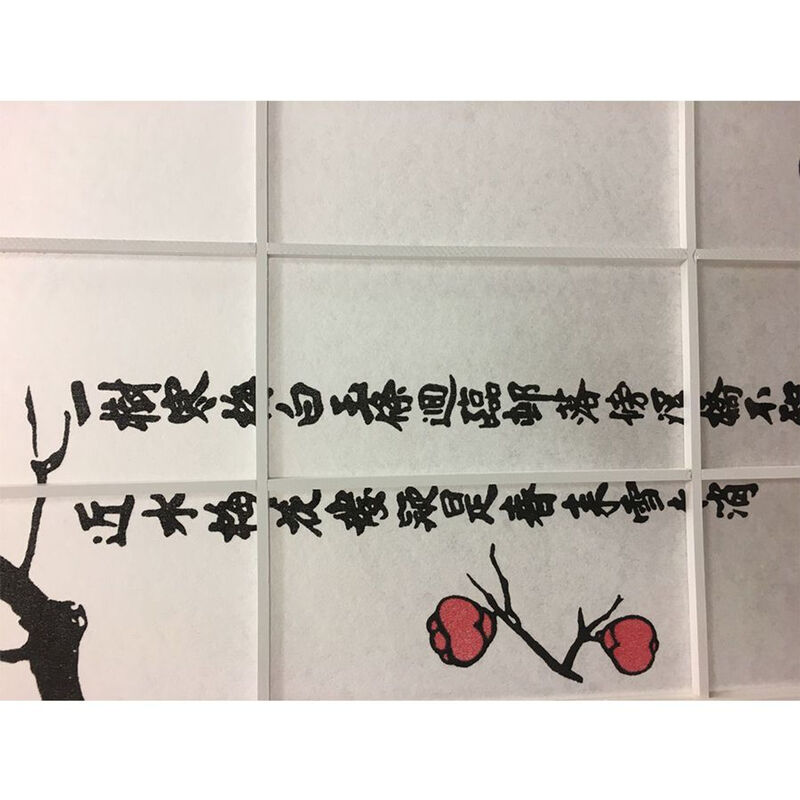 一樹寒梅白玉條迥臨邨落傍溪橋不知
近水梅花發疑是春来雪消